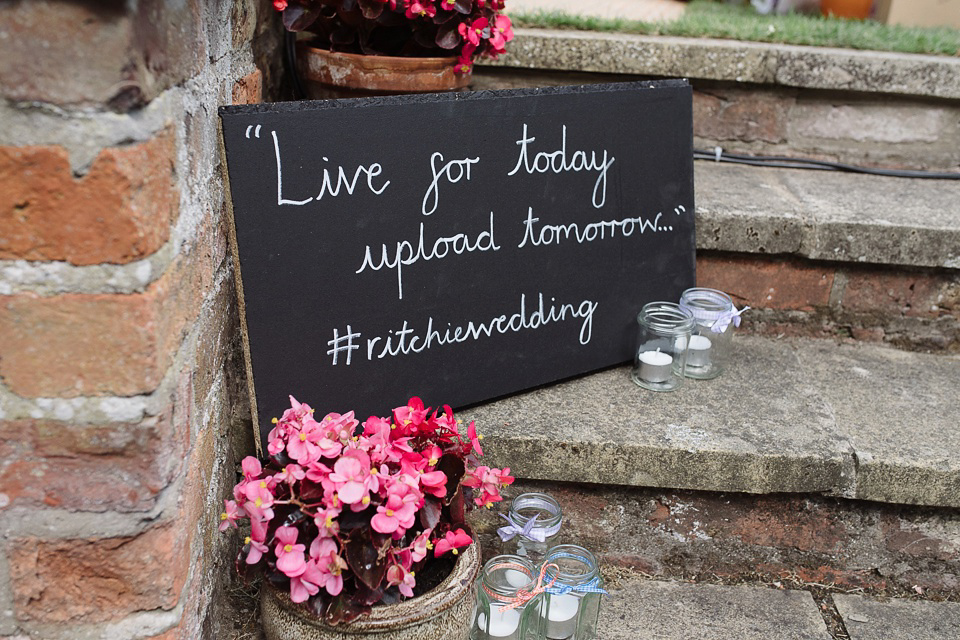 "Live for today
upload tomorrow..."
#ritchiewedding